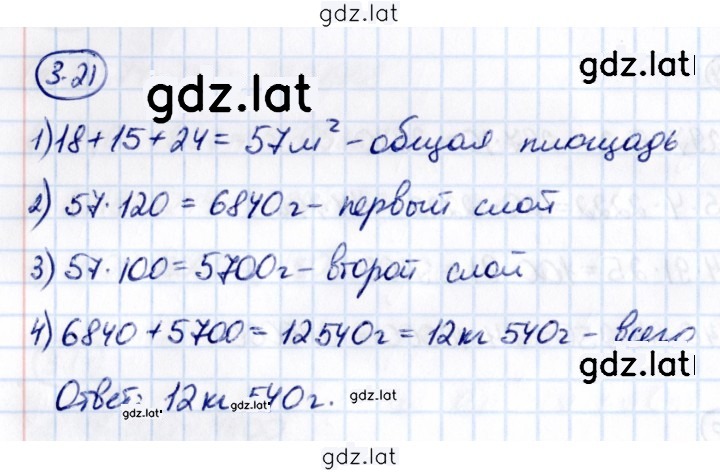 gdz.lat
3.21
gdz.lat
gdz.lat
1) 18 + 15 + 24 = 57 м² - общая площадь
2) 57 · 120 = 6840 г - первый слой
3) 57 · 100 = 5700 г - второй слой
4) 6840 + 5700 = 12540 г = 12 кг 540 г - всего
gdz.lat
Ответ: 12 кг 540 г.
gdz.lat
gdz.lat
gdz.lat
gdz.lat